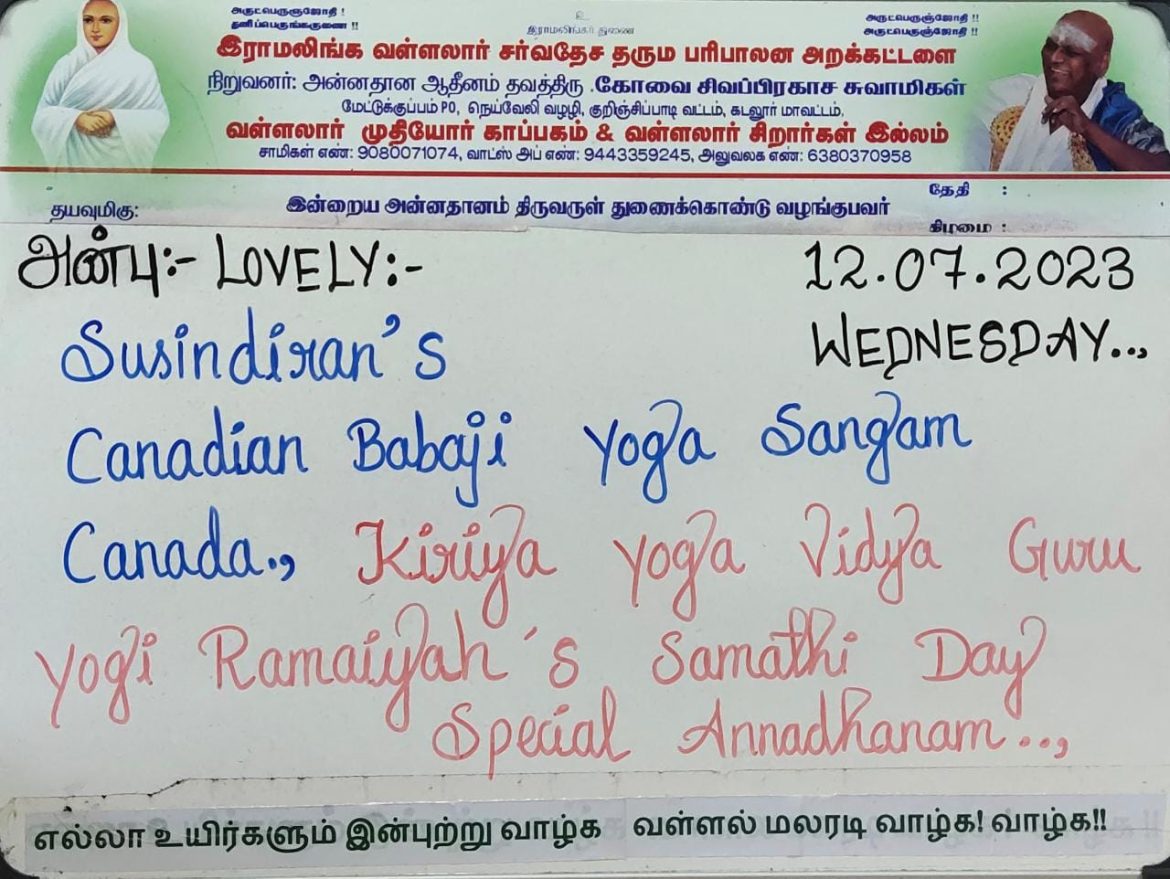 அருட்பெருஞ்ஜோதி !
தனிப்பெருங்கருணை !!
உ
இராமலிங்கர் துணை
அருட்பெருஞ்ஜோதி !!
அருட்பெருஞ்ஜோதி !!
இராமலிங்க வள்ளலார் சர்வதேச தரும பரிபாலன அறக்கட்டளை
நிறுவனர்: அன்னதான ஆதீனம் தவத்திரு .கோவை சிவப்பிரகாச சுவாமிகள்
மேட்டுக்குப்பம் PO, நெய்வேலி வழழி, குறிஞ்சிப்பாடி வட்டம், கடலூர் மாவட்டம்.
வள்ளலார் முதியோர் காப்பகம் & வள்ளலார் சிறார்கள் இல்லம்
சாமிகள் எண்: 9080071074, வாட்ஸ் அப் எண்: 9443359245, அலுவலக எண்: 6380370958
தயவுமிகு:
இன்றைய அன்னதானம் திருவருள் துணைக்கொண்டு வழங்குபவர்
தேதி :
கிழமை :
அன்பு:- LOVELY:-
12.07.2023
WEDNESDAY..,
Susindiran's
Canadian Babaji Yoga Sangam
Canada., Kiriya Yoga Vidya Guru
Yogi Ramaiyah's Samathi Day
Special Annadhanam..,
எல்லா உயிர்களும் இன்புற்று வாழ்க வள்ளல் மலரடி வாழ்க! வாழ்க!!